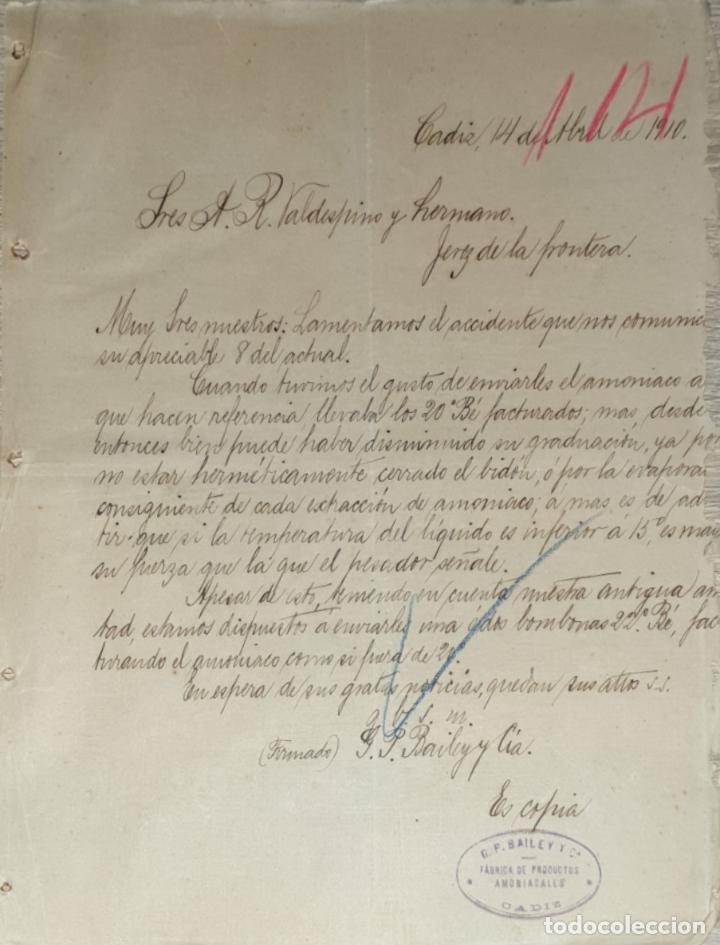 1 14
Cadiz, 14 de Abril de 1910.
Sres A. R. Valdespino y hermano.
Jerez de la frontera.
Muy Sres nuestros: Lamentamos el accidente que nos comunic
su apreciable 8 del actual.
Cuando tuvimos el gusto de enviarles el amoniaco a
que hacen referencia, llevaba los 20º Bé facturados; mas, desde
entonces bien puede haber disminuido su graduación, ya por
no estar herméticamente cerrado el bidón, ó por la evaporac
consiguiente de cada extracción de amoniaco; a mas es de ad
tir que si la temperatura del líquido es inferior á 15º, es may
su fuerza que la que el pesador señale.
Apesar de esto, teniendo en cuenta nuestra antigua am
tad, estamos dispuestos á enviarles una ó dos bombonas 22º Bé, fac
turando el amoniaco como si fuera de 20º
En espera de sus gratas noticias, quedan sus attos s.s.
q. b. s. m.
(Firmado) G. P. Bailey y Cía.
Es copia
G. P. BAILEY Y Cª
FÁBRICA DE PRODUCTOS
AMONIACALES
* CADIZ *
todocoleccion.net